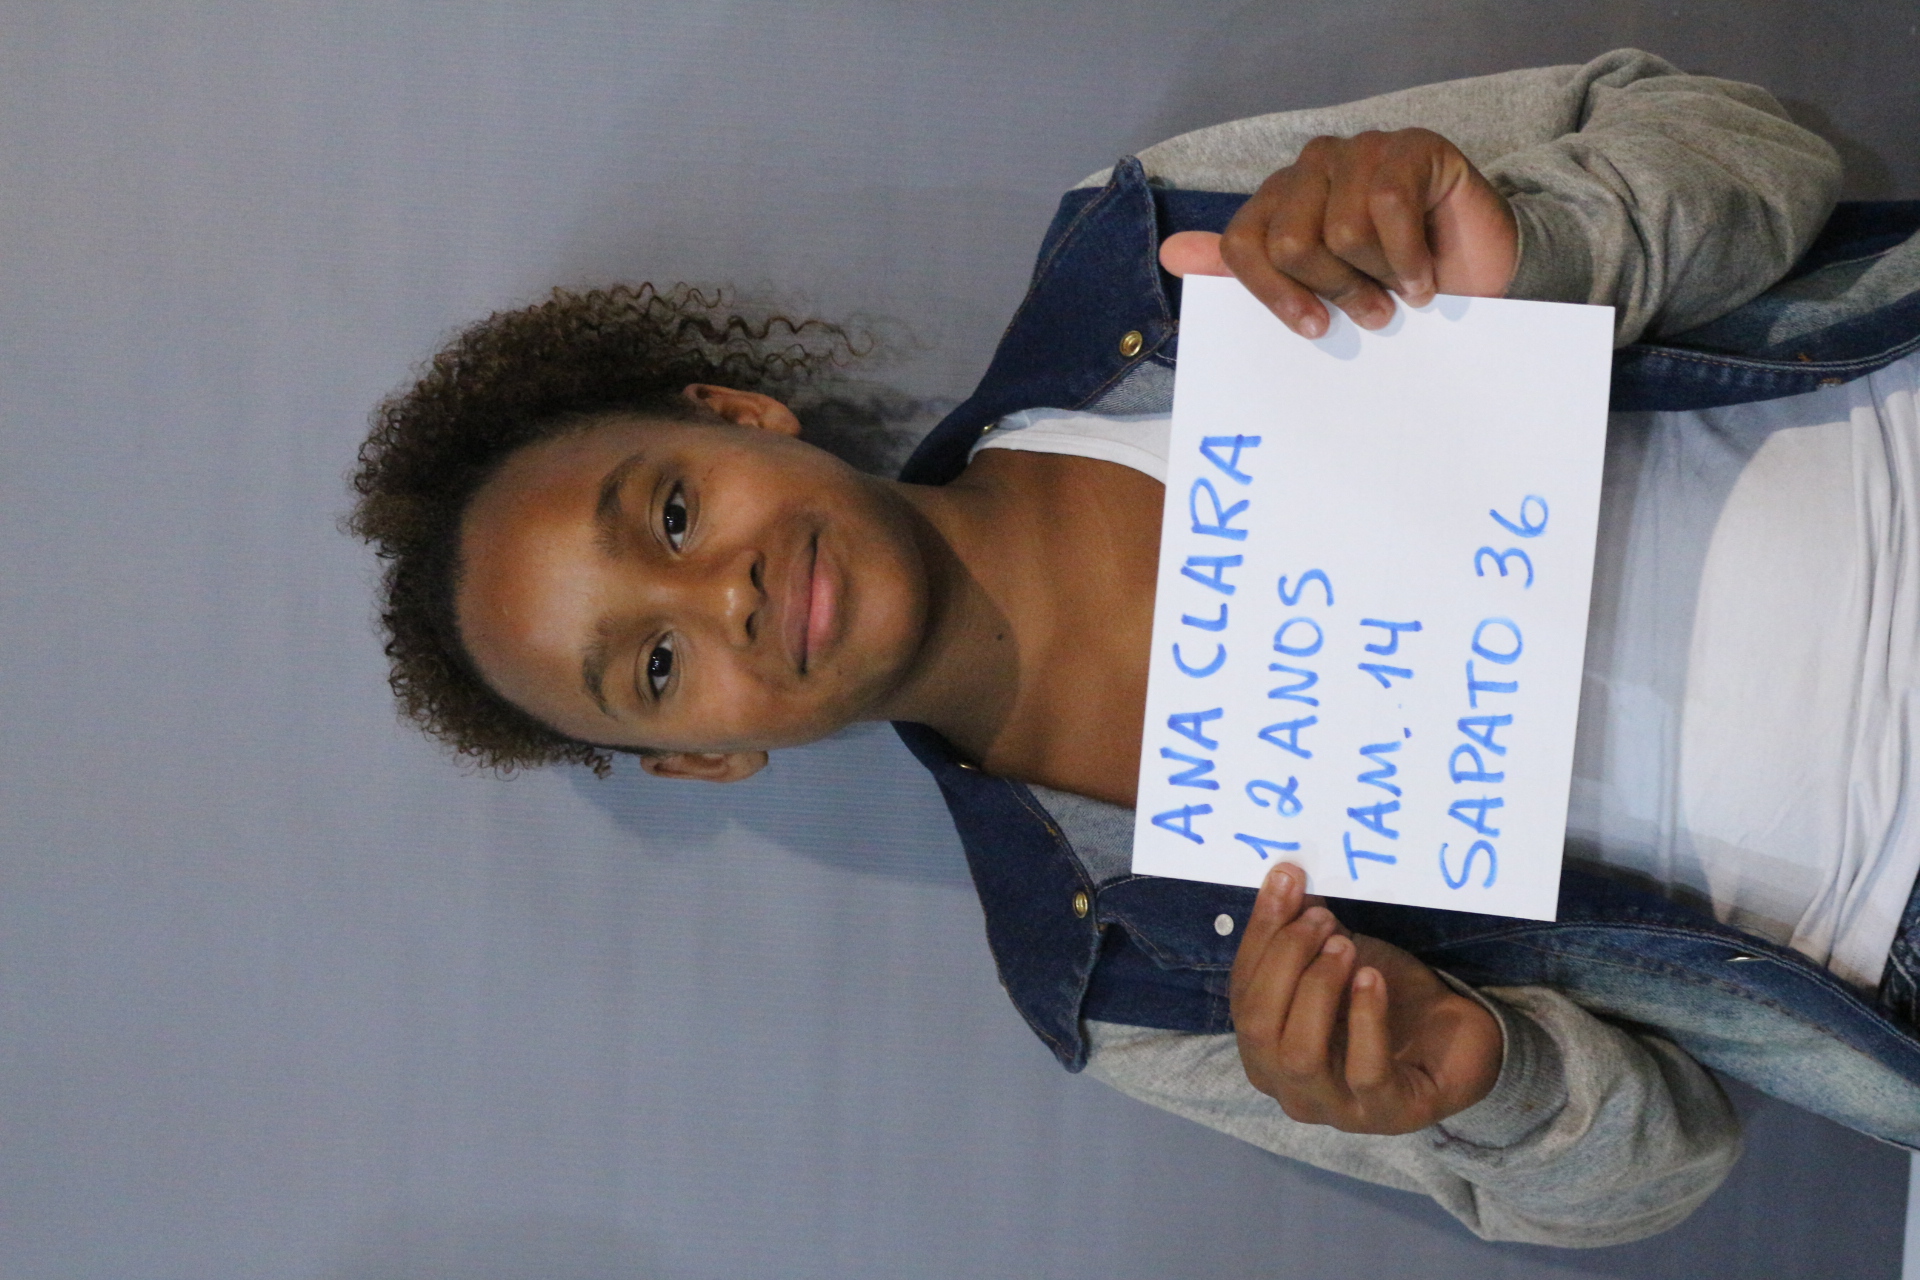 ANA CLARA
12 ANOS
TAM. 14
SAPATO 36